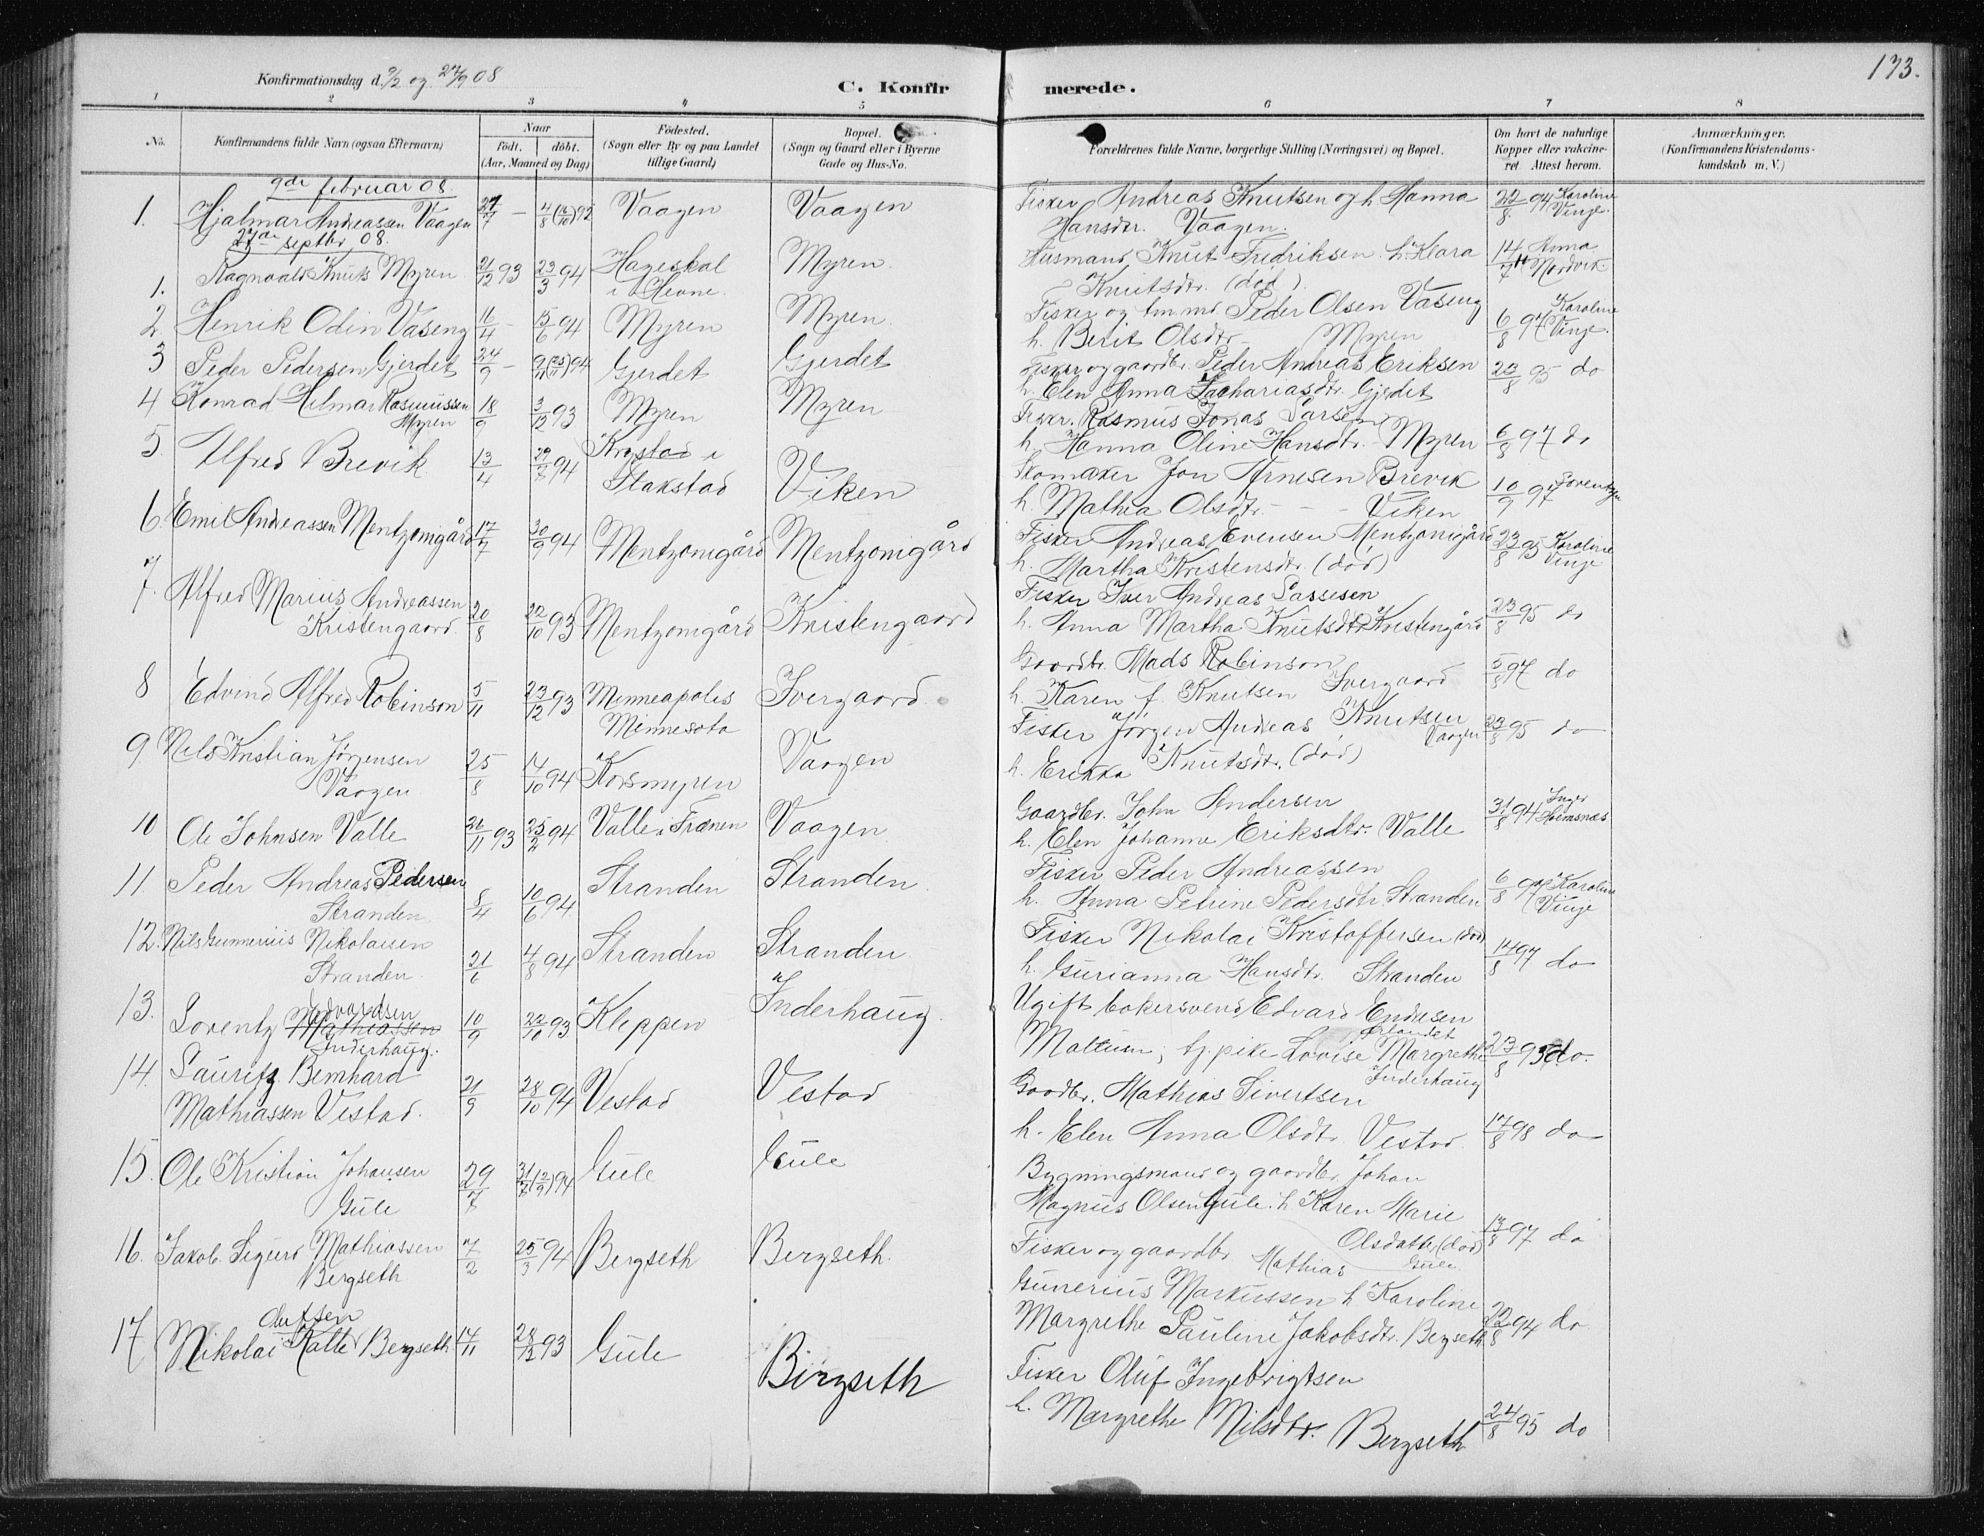 173.
Konfirmationsdag d. 9/2 og 27/9 08
C. Konfirmerede.
1 2 3 4 5 6 7 8
No.
Konfirmandens fulde Navn (ogsaa Efternavn)
Naar
födt. döbt.
(Aar, Maaned og Dag)
Födested.
(Sogn eller By og paa Landet
tillige Gaard)
Bopæl.
(Sogn og Gaard eller i Byerne
Gade og Hus-No.
Forældrenes fulde Navne, borgerlige Stilling (Næringsvei) og Bopæl.
Om havt de naturlige
Kopper eller vakcine-
ret. Attest herom.
Anmærkninger.
(Konfirmandens Kristendoms-
kundskab m. V.)
9de februar 08.
1. Hjalmar Andreassen Vaagen 27/7 – 4/8 92 Vaagen Vaagen Fisker Andreas Knutsen og h. Hanna 22/8 94 Karoline
Hansdtr. Vaagen. Vinje.
27de septbr 08.
1. Ragnvald Knuts Myren 21/12 93 23/3 94 Hageskal Myren. Husmand Knut Fredriksen h. Klara 14/7 Anna
i Hevne. Knutsdtr. (död). Nordvik
2. Henrik Odin Vaseng 16/4 – 15/6 94 Myren Myren. Fisker og Peder Olsen Vaseng 6/8 97 Karoline
h. Berit Olsdtr – Myren Vinje.
3 Peder Pedersen Gjerdet 24/9 – 9/11 (25/11) 94 Gjerdet Gjerdet Fisker og gaardbr. Peder Andreas Eriksen 23/8 95 do
h. Elen Anna Zachariasdtr. Gjerdet
4 Konrad Helmar Rasmussen 18/9 3/12 93 Myren Myren Fisker. Rasmus Jonas Larsen
Myren h. Hanna Oline Hansdtr. Myren 6/8 97 do
5 Alfred Brevik 13/4 29/7 94 Krogstad i Viken Skomaker Jon Arnesen Brevik 10/9 97
Stakstad h. Mathea Olsdtr. – – – Viken
6. Emil Andreassen Mentzonigård 17/7 30/9 94 Mentzonigård Mentzonigård Fisker Andreas Evensen Mentzonigård 23/8 95 Karoline
h. Martha Kristensdtr. (död) Vinje
7. Alfred Marius Andreassen 20/8 22/10 93 Mentzonigård Kristengaard Fisker Iver Andreas Lassesen 23/8 95 do
Kristengaard. h. Anna Martha Knutsdtr. Kristengård
8 Edvind Alfred Robinson 5/11 23/12 93 Minneapolis Ivergaard. Gaardbr. Mads Robinson 5/8 97 do
Minnesota h. Karen f. Knutsen Ivergaard
9 Nils Kristian Jörgensen 25/8 14/10 94 Korsmyren Vaagen Fisker Jörgen Andreas Knutsen 23/8 95 do
Vaagen. h. Erikka Knutsdtr. (död) Vaagen
10 Ole Johnsen Valle 26/11 93 25/2 94 Valle i Frænen Vaagen Gaardbr. John Andersen 31/8 94 Inger
h. Elen Johanne Eriksdtr. Valle Hemsnæs
11. Peder Andreas Pedersen 8/4 10/6 94 Stranden Stranden. Fisker Peder Andreassen 6/8 97 Karoline
Stranden h. Anna Petrine Pedersdtr Stranden Vinje
12. Nils Gunnerius Nikolaisen 21/6 4/8 94 Stranden Stranden Fisker Nikolai Kristoffersen (död) 14/8 97 do
Stranden. h. Gurianna Hansdtr. Stranden
13. Lorentz Mathiassen Edvardsen 10/9 22/10 93 Kleppen Inderhaug. Ugift bokersvend Edvard Endresen
Inderhaug. tj. pike Lovise Margrethe 23/8 95 do.
Inderhaug
14. Lauritz Bernhard 21/9 28/10 94 Vestad Vestad Gaardbr. Mathias Sivertsen
Mathiassen Vestad. h. Elen Anna Olsdtr. Vestad 17/8 98 do
15. Ole Kristian Johansen 29/7 31/7 (2/9) 94 Gule Gule Bygningsmand og gaardbr. Johan
Gule Magnus Olsen Gule. h Karen Marie
Olsdatter (död) 13/8 97 do
Gule.
16. Jakob Sigurd Mathiassen 7/2 25/3 94 Bergseth Bergseth. Fisker og gaardbr Mathias
Bergseth Gunerius Markussen h Karoline
Margrethe Pauline Jakobsdtr. Bergseth 22/8 94 do.
17 Nikolai Olufsen Kalle Bergseth 14/11 28/12 93 Gule Bergseth Fisker Oluf Ingebrigtsen
h. Margrethe Nilsdtr. Bergseth 24/8 95 do